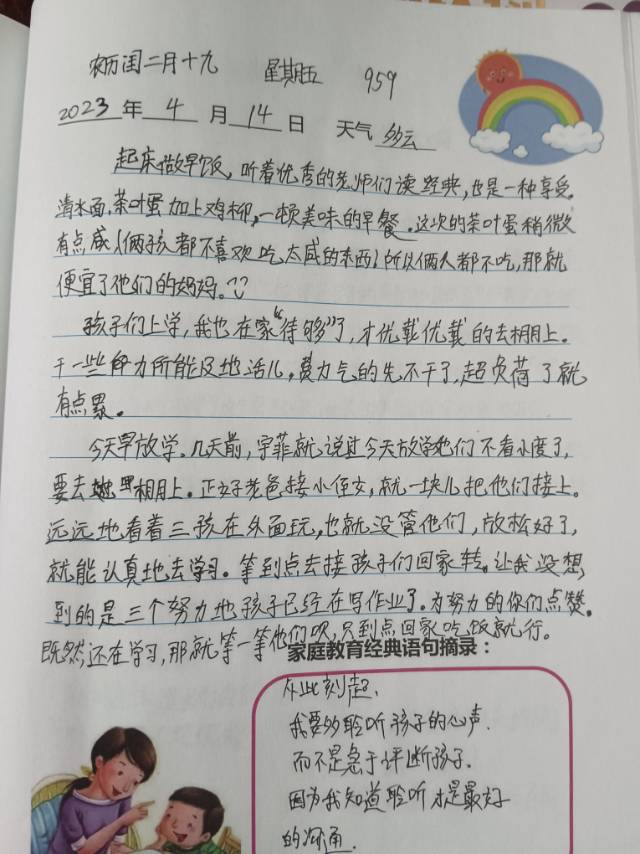 农历闰二月十九 星期五 959
2023年 4月 14日 天气 多云
起床做早饭，听着优秀的老师们读经典，也是一种享受
清水面.茶叶蛋加上鸡柳，一顿美味的早餐。这次的茶叶蛋稍微
有点咸（俩孩都不喜欢吃太咸的东西）所以俩人都不吃，那就
便宜了他们的妈妈。
孩子们上学，我也在家“待够”了，才优哉优哉的去棚上。
干一些力所能及地活儿，费力气的先不干了，超负荷了就
有点累。
今天早放学。几天前，宇菲就说过今天放学他们不看小度了，
要去棚上。正好老爸接小侄女，就一块儿把他们接上。
远远地看着三孩在外面玩，也就没管他们，放松好了，
就能认真地去学习。等到点去接孩子们回家转。让我没想
到的是三个努力地孩子已经在写作业了。为努力的你们点赞。
既然还在学习，那就等一等他们呗，只到点回家吃饭就行。
家庭教育经典语句摘录：
从此刻起，
我要多聆听孩子的心声.
而不是急于评断孩子.
因为我知道聆听才是最好
的沟通.